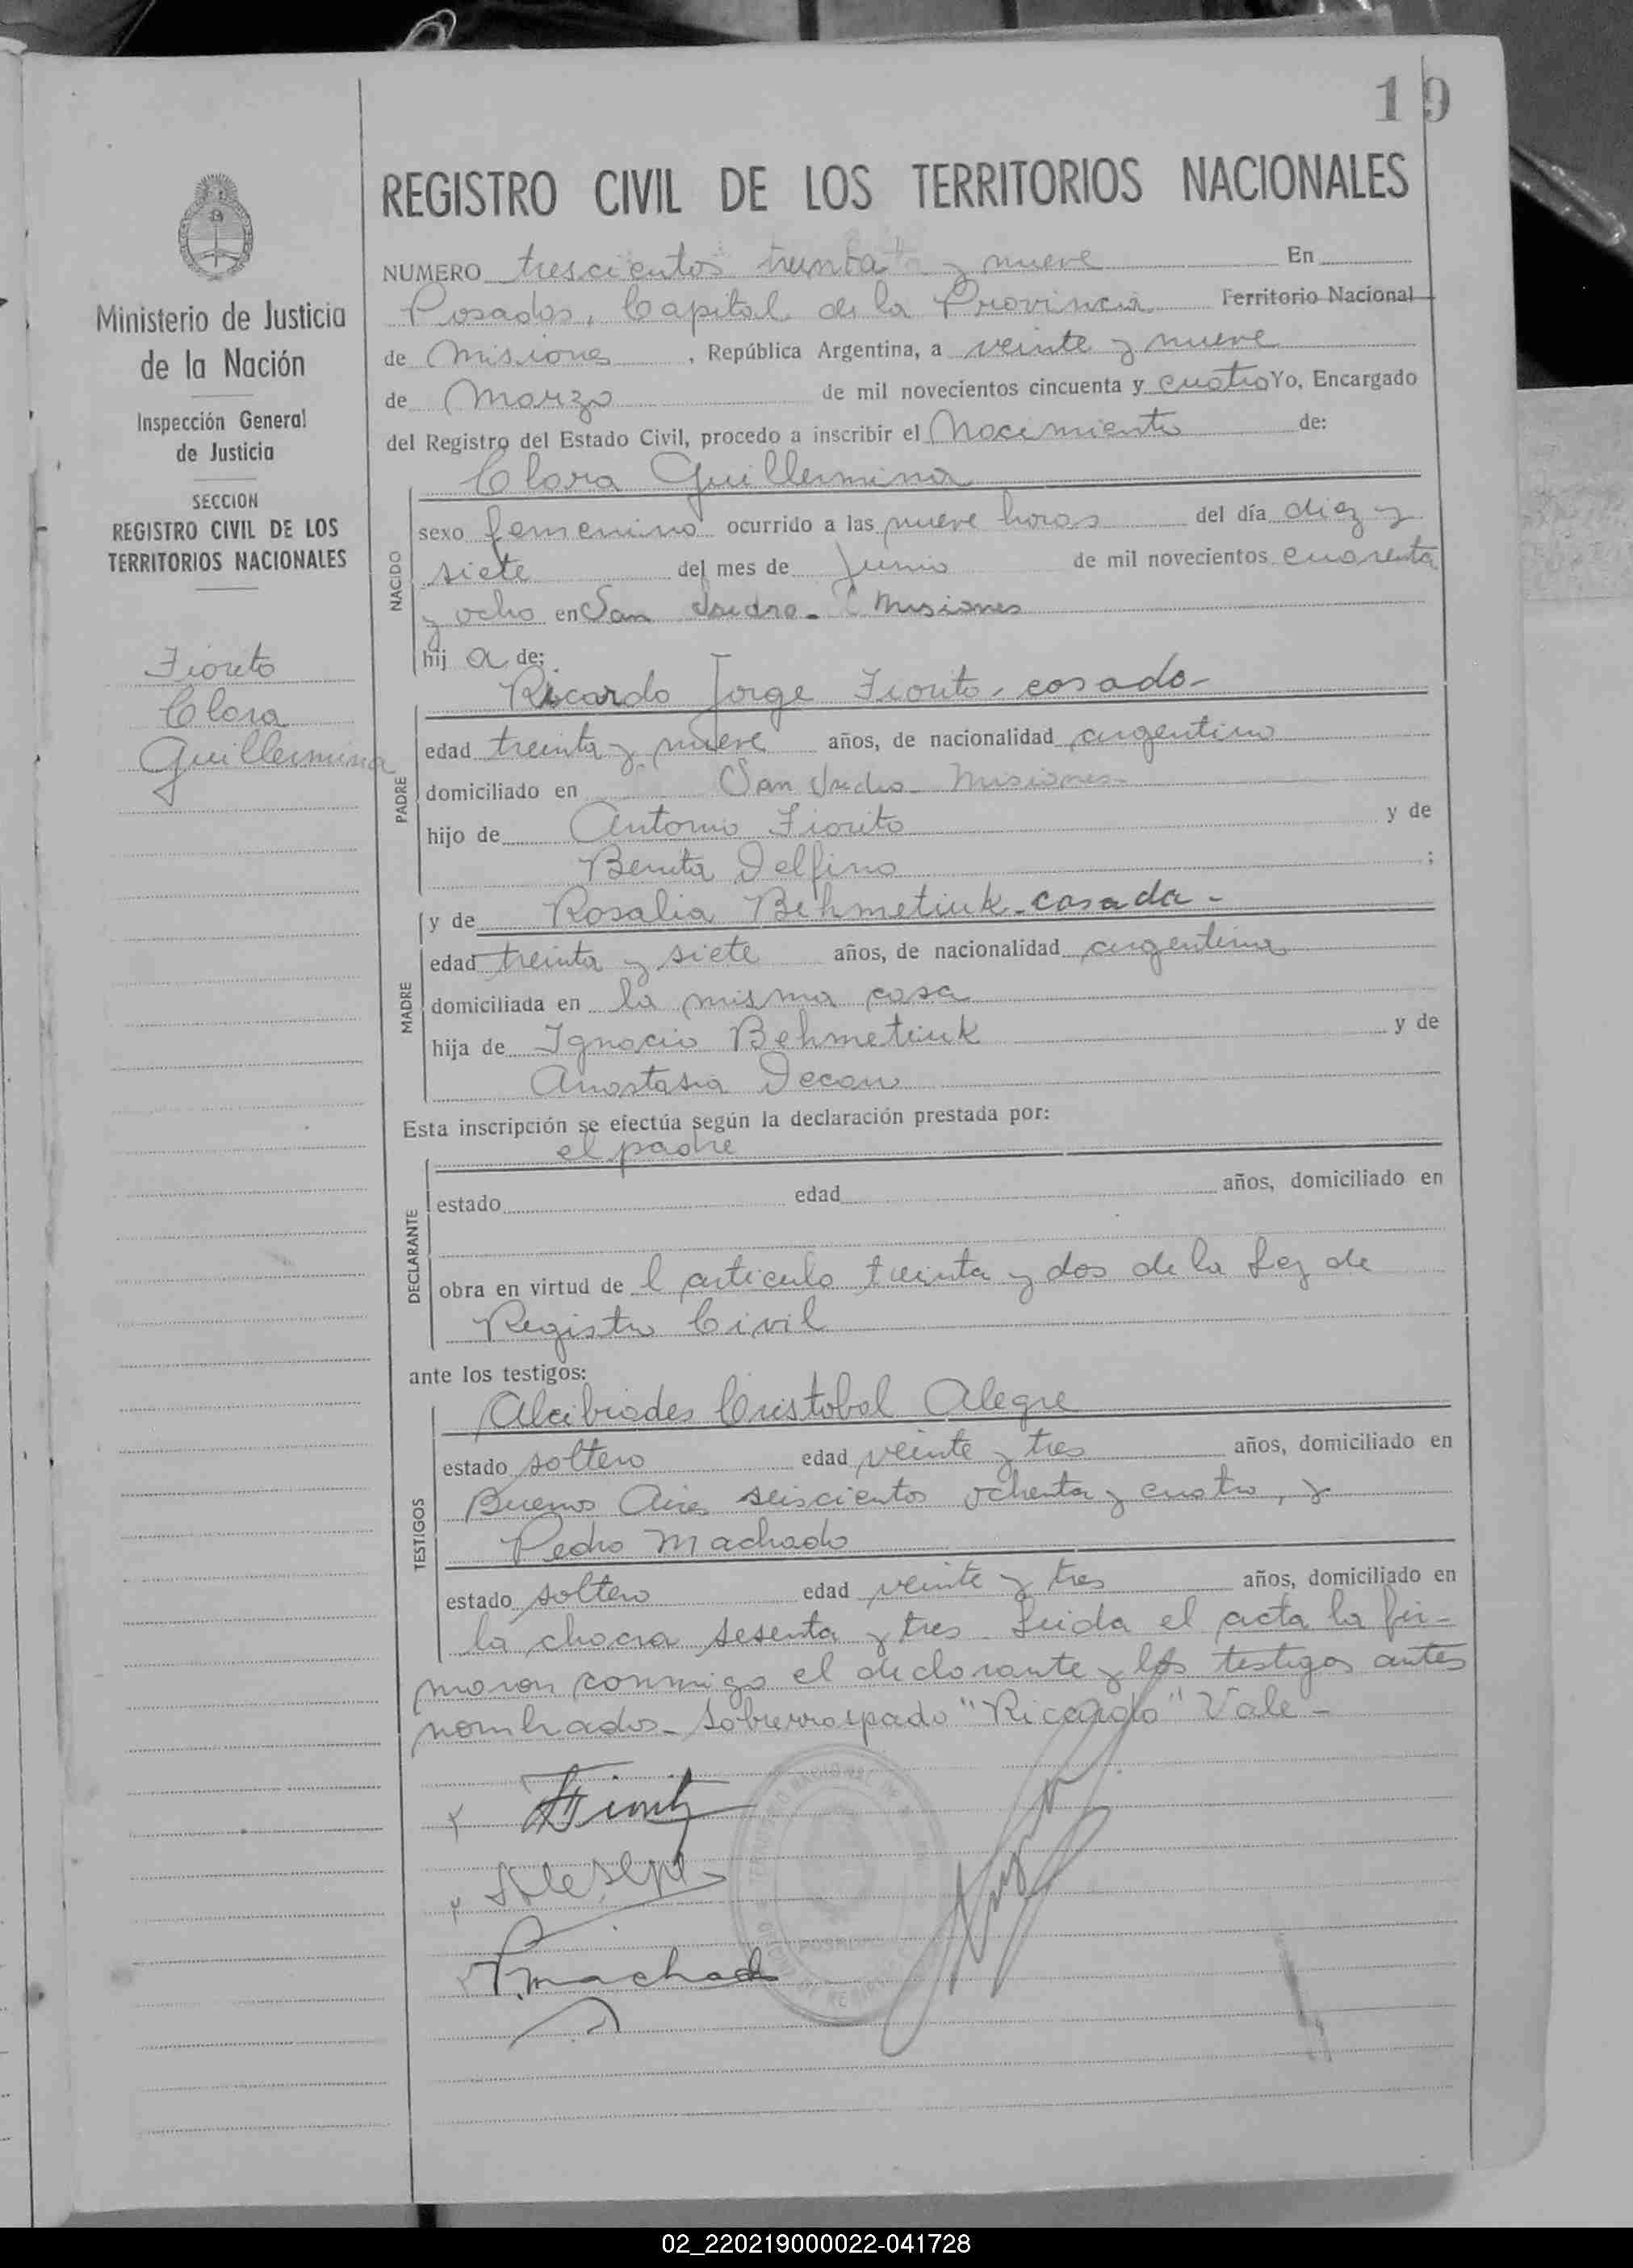 19
REGISTRO CIVIL DE LOS TERRITORIOS NACIONALES
NUMERO trescientos treinta y nueve En
Posadas, Capital de la Provincia Territorio Nacional
de Misiones, República Argentina, a veinte y nueve
de Marzo de mil novecientos cincuenta y cuatro Yo, Encargado
del Registro del Estado Civil, procedo a inscribir el Nacimiento de:
Clara Guillermina
NACIDO
sexo femenino ocurrido a las nueve horas del día diez y
siete del mes de Junio de mil novecientos cuarenta
y ocho en San Isidro - Misiones
hij a de:
Ricardo Jorge Fiorito - casado -
PADRE
edad treinta y nueve años, de nacionalidad argentino
domiciliado en San Isidro - Misiones -
hijo de Antonio Fiorito y de
Benita Delfino ;
y de Rosalia Behmetiuk - casada -
MADRE
edad treinta y siete años, de nacionalidad argentina
domiciliada en la misma casa
hija de Ignacio Behmetiuk y de
Anastasia Decan
Esta inscripción se efectúa según la declaración prestada por:
el padre
DECLARANTE
estado edad años, domiciliado en
obra en virtud de l articulo treinta y dos de la Ley de
Registro Civil
ante los testigos:
Alcibiades Cristobal Alegre
TESTIGOS
estado soltero edad veinte y tres años, domiciliado en
Buenos Aires seiscientos ochenta y cuatro, y
Pedro Machado
estado soltero edad veinte y tres años, domiciliado en
la chacra sesenta y tres - Leida el acta la fir-
maron conmigo el declarante y los testigos antes
nombrados - Sobrerraspado "Ricardo" Vale -
P. Machado
Ministerio de Justicia
de la Nación
Inspección General
de Justicia
SECCION
REGISTRO CIVIL DE LOS
TERRITORIOS NACIONALES
Fiorito
Clara
Guillermina
02_220219000022-041728